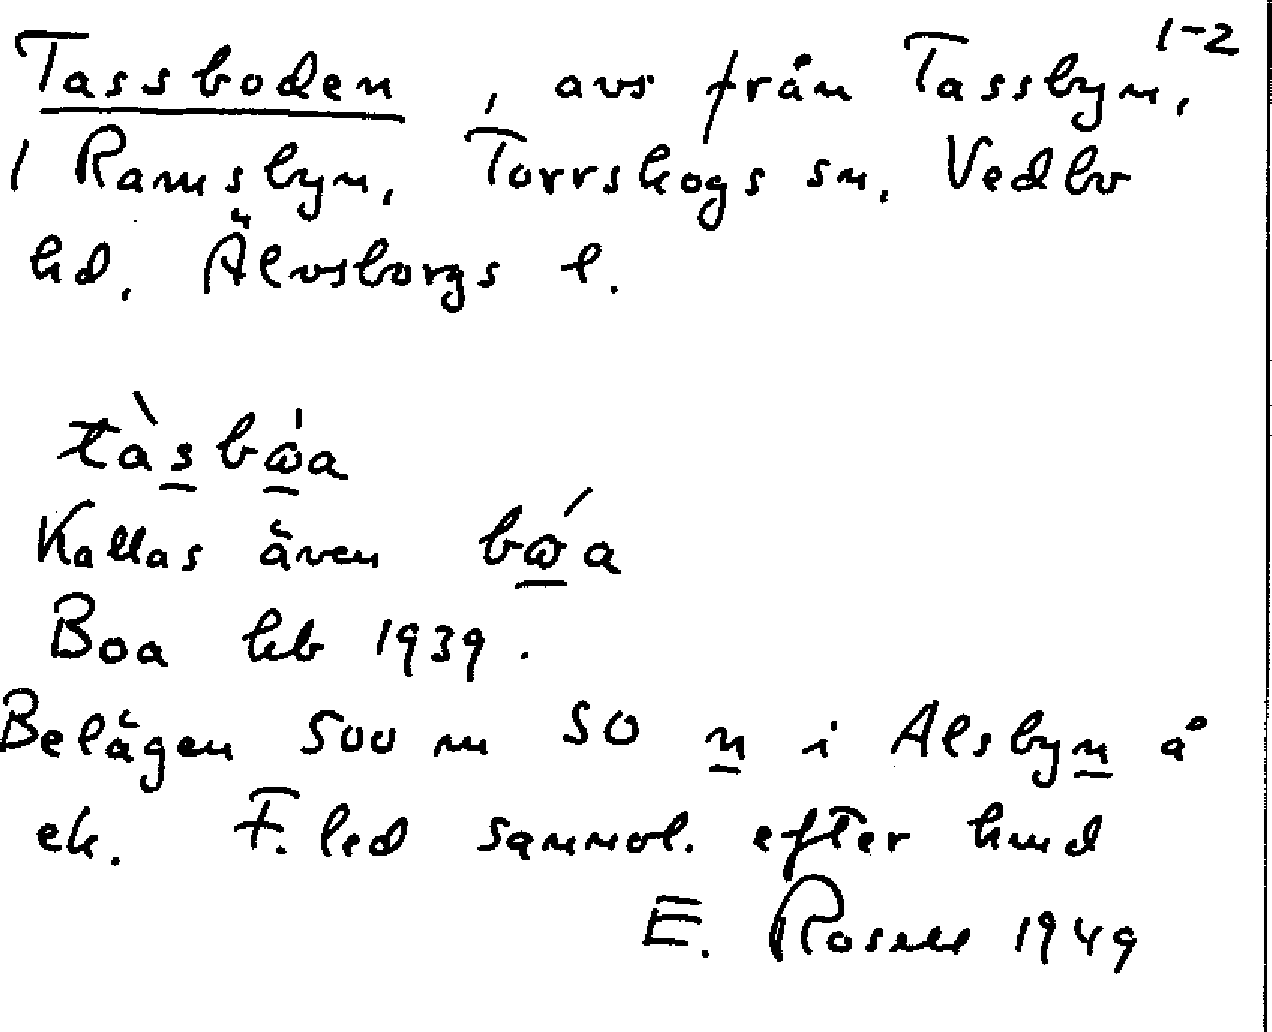 Tassboden, avs från Tassbyn, 1-2
1 Ramsbyn, Torrskogs sn. Vedbo
hd. Älvsborgs l.
tàsbωa
Kallas även bωa
Boa hb 1939.
Belägen 500 m SO n i Alsbyn å
ek. F. led sannol. efter hund
E. Rosell 1949